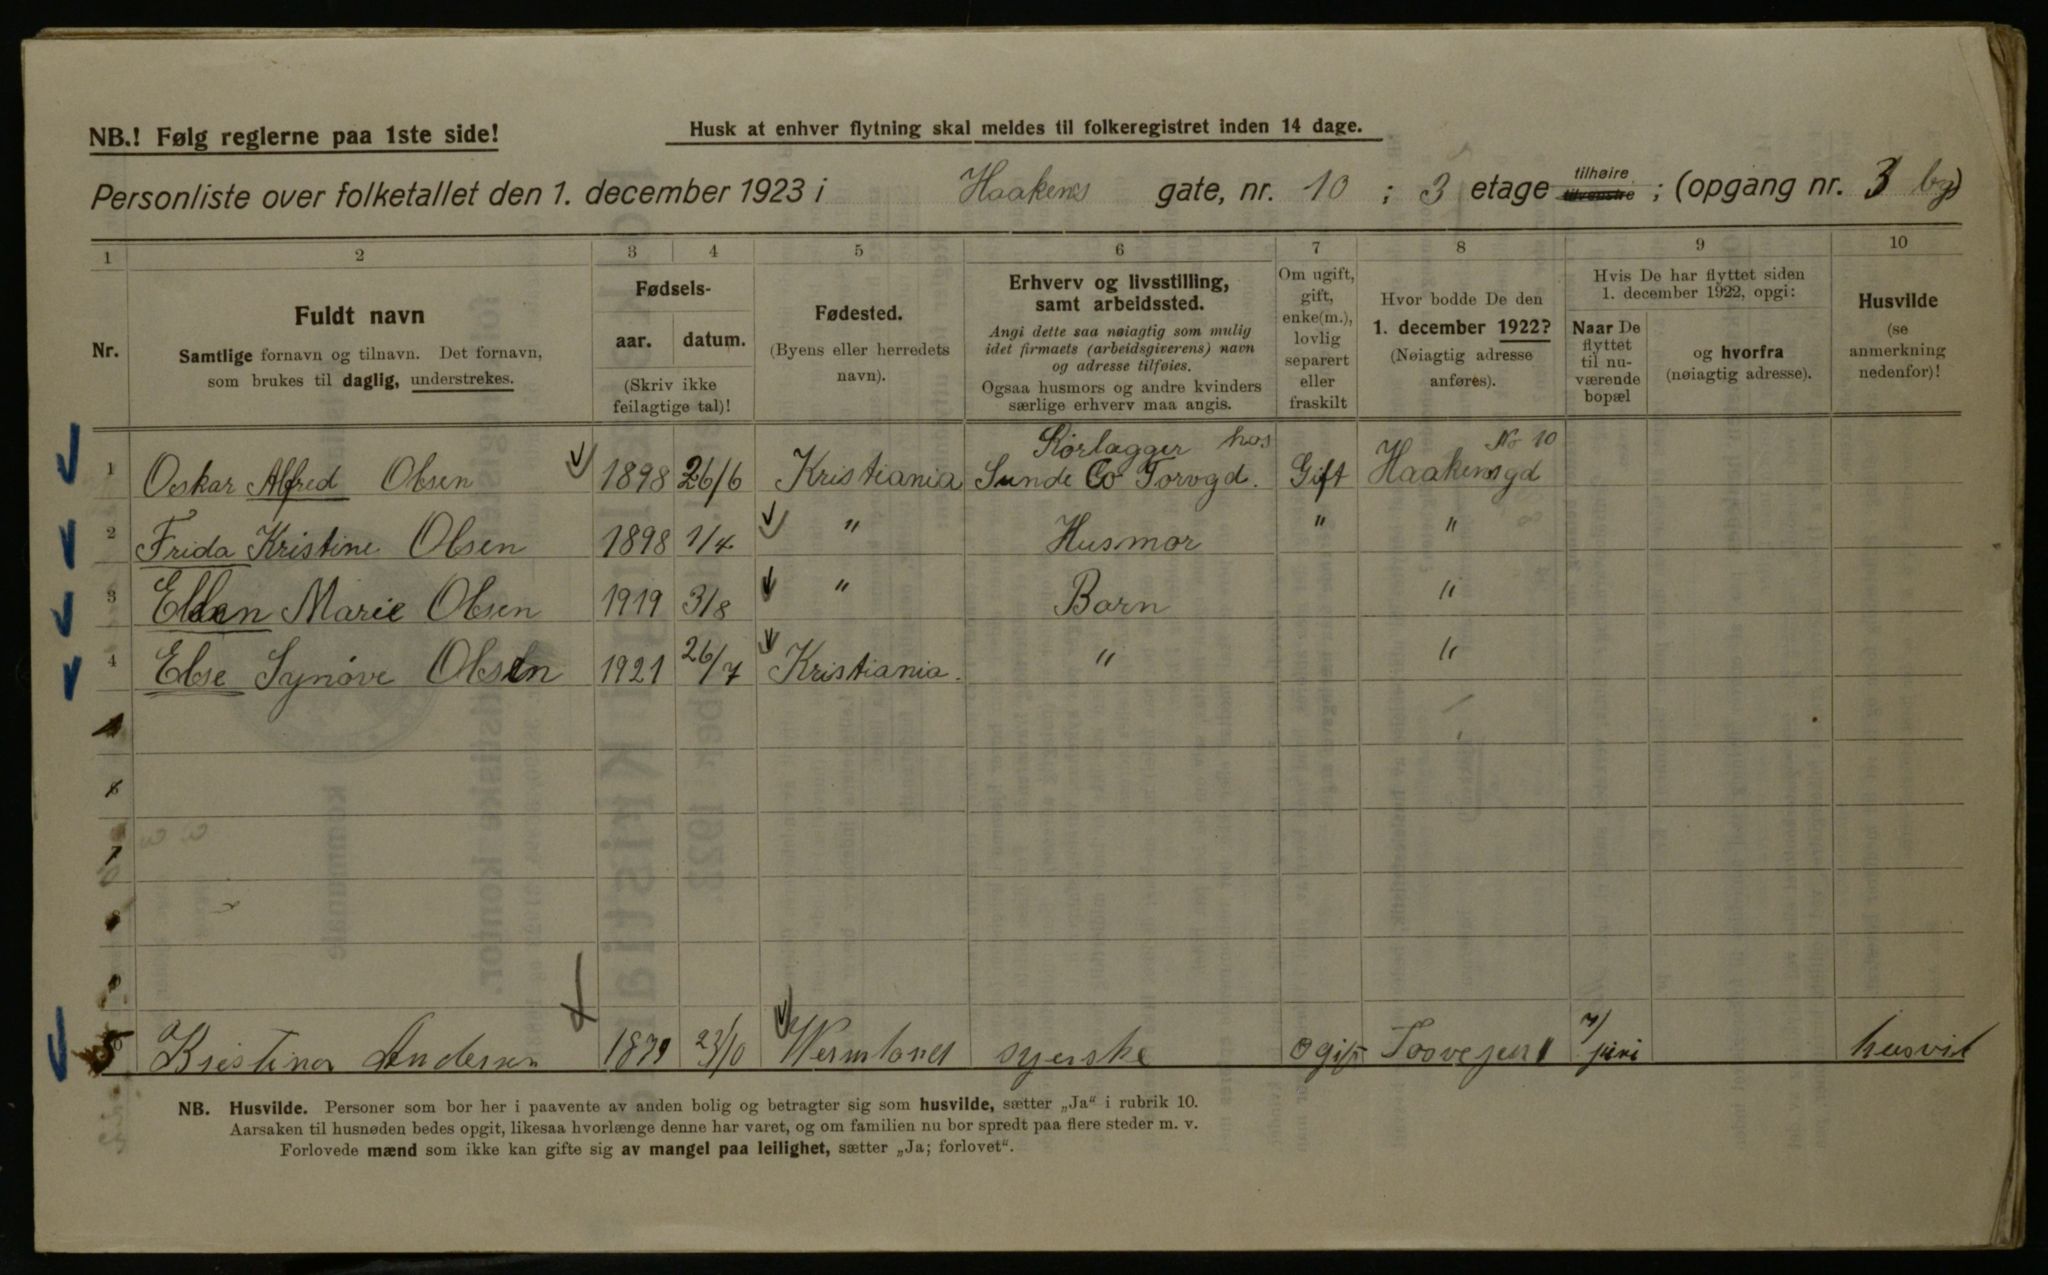 NB.! Følg reglerne paa 1ste side!
Husk at enhver flytning skal meldes til folkeregistret inden 14 dage.
Personliste over folketallet den 1. december 1923 i Haakens gate, nr. 10 ; 3 etage tilhøire tilvenstre ; (opgang nr. 3 bg)
1 2 3 4 5 6 7 8 9 10
Nr.
Fuldt navn
Samtlige fornavn og tilnavn. Det fornavn,
som brukes til daglig, understrekes.
Fødsels-
aar. datum.
(Skriv ikke
feilagtige tal)!
Fødested.
(Byens eller herredets
navn).
Erhverv og livsstilling,
samt arbeidssted.
Angi dette saa nøiagtig som mulig
idet firmaets (arbeidsgiverens) navn
og adresse tilføies.
Ogsaa husmors og andre kvinders
særlige erhverv maa angis.
Om ugift,
gift,
enke(m.),
lovlig
separert
eller
fraskilt
Hvor bodde De den
1. december 1922?
(Nøiagtig adresse
anføres).
Hvis De har flyttet siden
1. december 1922, opgi:
Naar De
flyttet
til nu-
værende
bopæl
og hvorfra
(nøiagtig adresse).
Husvilde
(se
anmerkning
nedenfor)!
Körlægger hos No 10
1 Oskar Alfred Olsen 1898 26/6 Kristiania Sunde Co Torvgd. Gift Haakensgd
2 Frida Kristine Olsen 1898 1/4 " Husmor " "
3 Ellen Marie Olsen 1919 3/8 " Barn "
4 Else Synøve Olsen 1921 26/7 Kristiania. " "
6
7
8
9
5 Kristina Andersen 1879 23/10 Wermland syerske Ogift 7/ juni husvil
NB. Husvilde. Personer som bor her i paavente av anden bolig og betragter sig som husvilde, sætter „Ja“ i rubrik 10.
Aarsaken til husnøden bedes opgit, likesaa hvorlænge denne har varet, og om familien nu bor spredt paa flere steder m. v.
Forlovede mænd som ikke kan gifte sig av mangel paa leilighet, sætter „Ja; forlovet“.